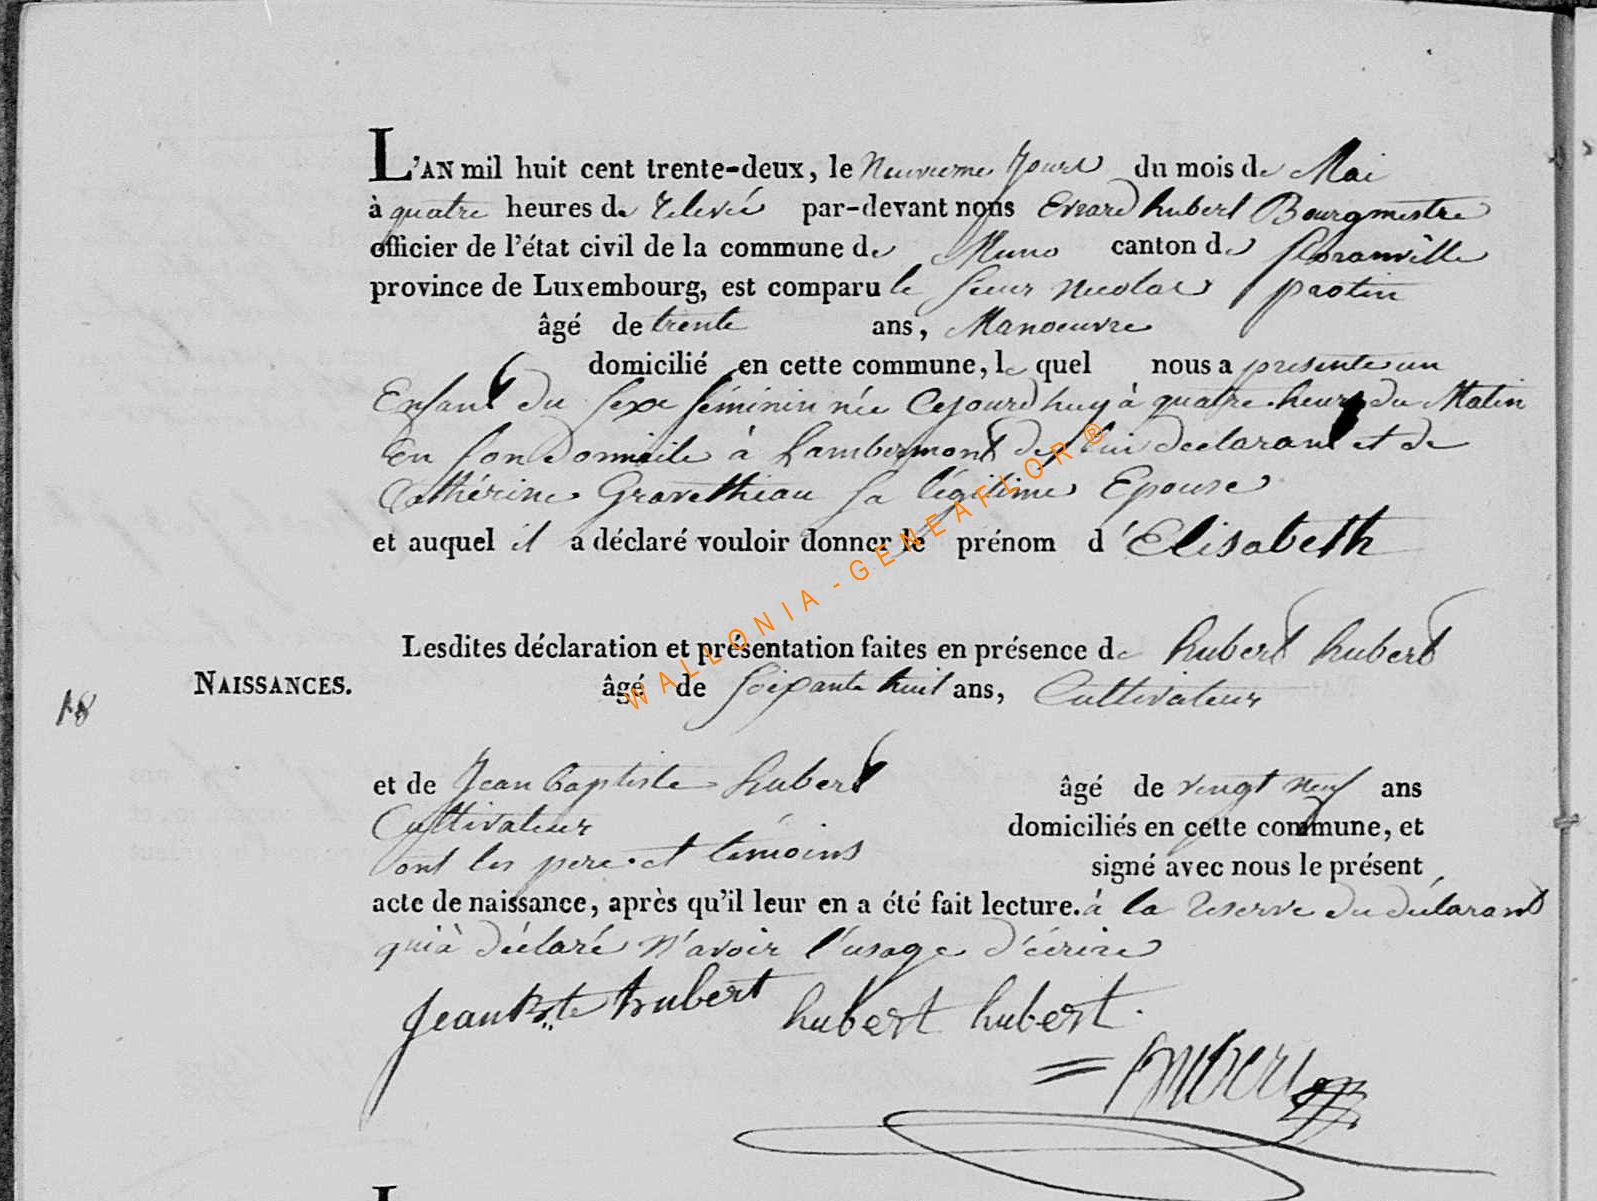 L'AN mil huit cent trente-deux, le Neuvieme Jours du mois de Mai
à quatre heures de relevée par-devant nous Evrard hubert Bourgmestre
officier de l'état civil de la commune de Muno canton de floranville
province de Luxembourg, est comparu le sieur Nicolas protin
âgé de trente ans, Manoeuvre
domicilié en cette commune, le quel nous a presente un
Enfant du sexe féminin née Cejourdhuy à quatre heurs du Matin
En son domicile à Lambermont de lui declarant et de
Cathérine Gravethiau sa légitime Epouse
et auquel il a déclaré vouloir donner le prénom d'Elisabeth
Lesdites déclaration et présentation faites en présence de hubert hubert
NAISSANCES. âgé de soixante huit ans, Cultivateur
18
et de Jean baptiste hubert âgé de vingt neuf ans
Cultivateur domiciliés en cette commune, et
ont les pere et témoins signé avec nous le présent
acte de naissance, après qu'il leur en a été fait lecture. à la reserve du déclarant
qui à déclaré n'avoir l'usage d'écrire
Jean Bte hubert hubert hubert.
hubert
WALLONIA-GENEAFLOR®